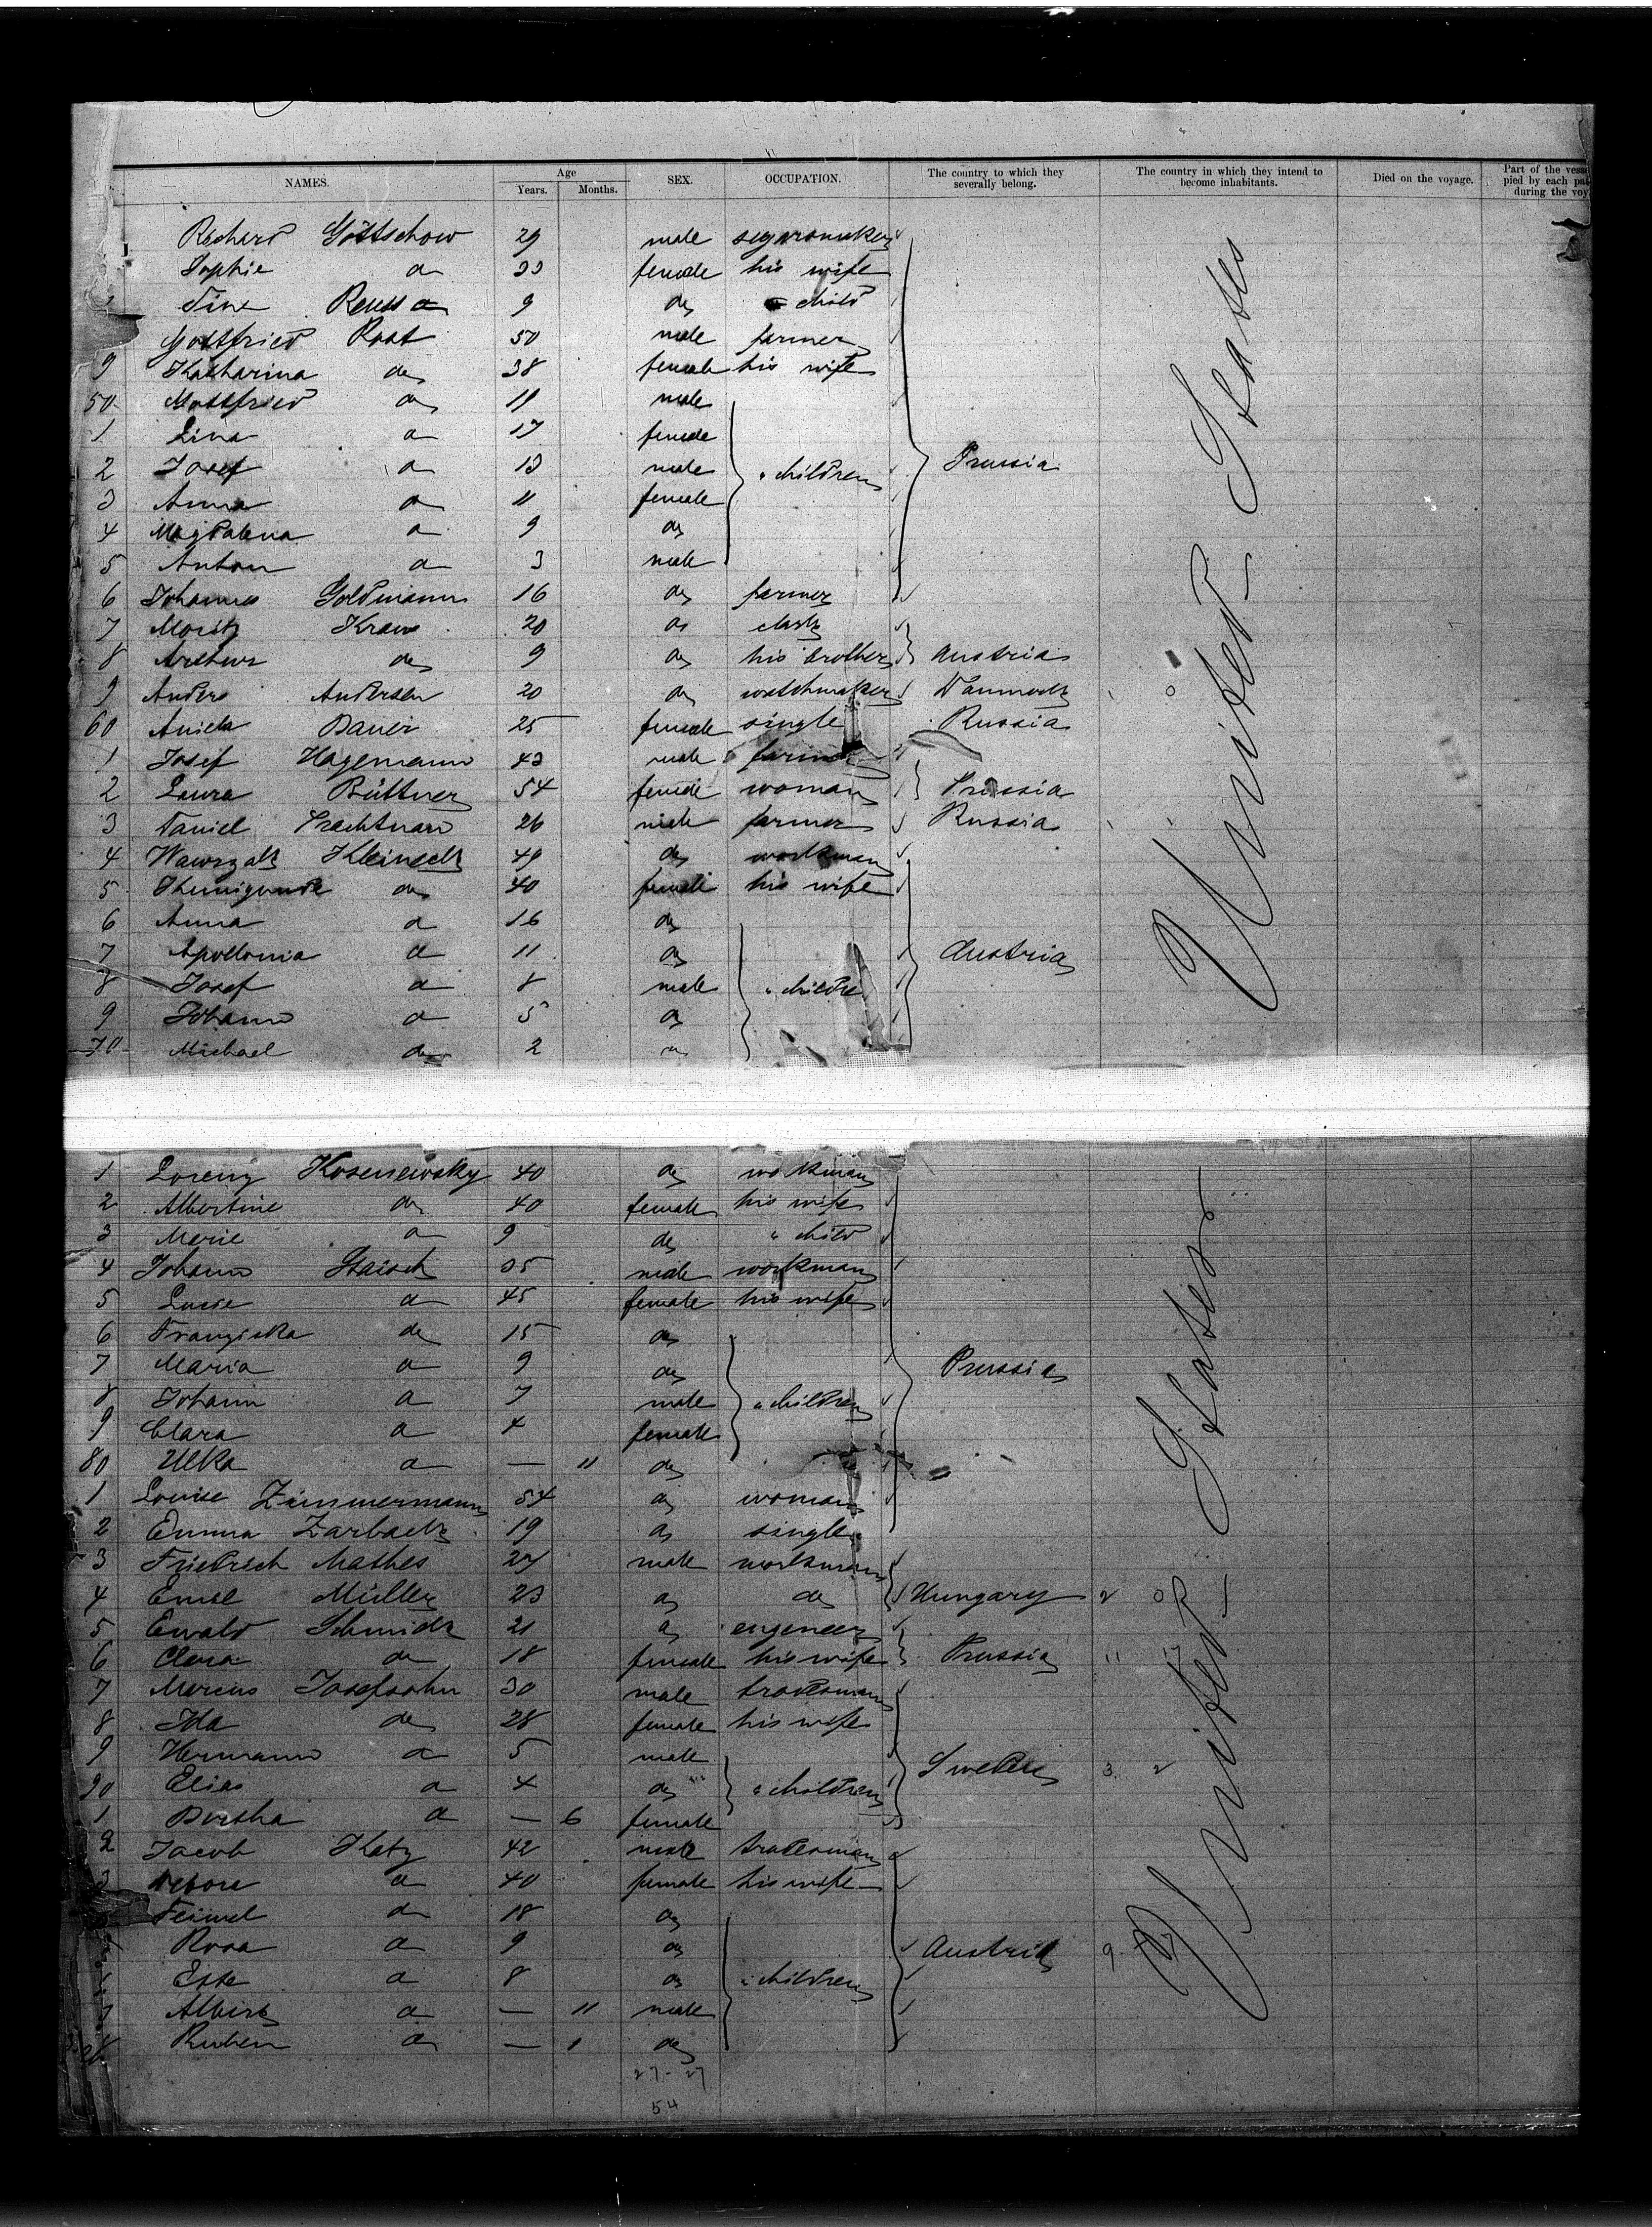 NAMES. Age Years. Months. SEX. OCCUPATION. The country to which they severally belong. The country in which they intend to become inhabitants. Died on the voyage. Part of the pied by each during the
Göttschow 29 male
Sophie 33 female his wife
9 do child
Gottfried Rost 50 male farmer
9 Katharina do 38 female his wife
50 do male
1 Lina do 17 female
2 Josef do 13 male " children Prussia
3 Anna do 11 female
4 Magdalena do 9 do
5 Anton do 3 male
6 Johannes Goldmann 16 do farmer
7 Moritz Kraus 20 do clerk
8 do 9 do his brother Austria
9 Anders Andersen 20 do watchmaker Danmark
60 Bauer 25 female single Russia
1 Josef Hagemann 43 male farmer
2 Laura Büttner 54 female woman Prussia
3 Daniel Trachtman 26 male farmer Russia
4 49 do workman
5 Kunigunde do 40 female his wife
6 Anna do 16 do
7 Apollonia do 11 do Austria
8 Josef do 8 male " childre
9 Johann do 5 do
70 Michael do 2 do
United States
1 Lorenz Kosenewsky 40 do workman
2 Albertine do 40 female his wife
3 Marie do 9 do " child
4 Johann 35 male workman
5 Luise do 45 female his wife
6 Franziska do 15 do
7 Maria do 9 do Prussia
8 Johann do 7 male " children
9 Clara do 4 female
80 do — 11 do
1 Louise Zimmermann 54 do woman
2 Emma Zarback 19 do single
3 Friedrich Mathes 27 male workman
4 Emil Müller 23 do do Hungary 2 0
5 Ewald Schmidt 21 do engeneer
6 Clara do 18 female his wife Prussia 11 17
7 Marcus Josefsohn 30 male tradesman
8 Ida do 28 female his wife
9 Hermann do 5 male
90 Elias do 4 do " children Sweden 3 2
1 Bertha do — 6 female
2 Jacob Katz 42 male tradesman
3 do 40 female his wife
do 18 do
Rosa do 9 do Austria 9
Este do 8 do " children
do — 11 male
Ruben do — 1 do
United States
27 - 27
54